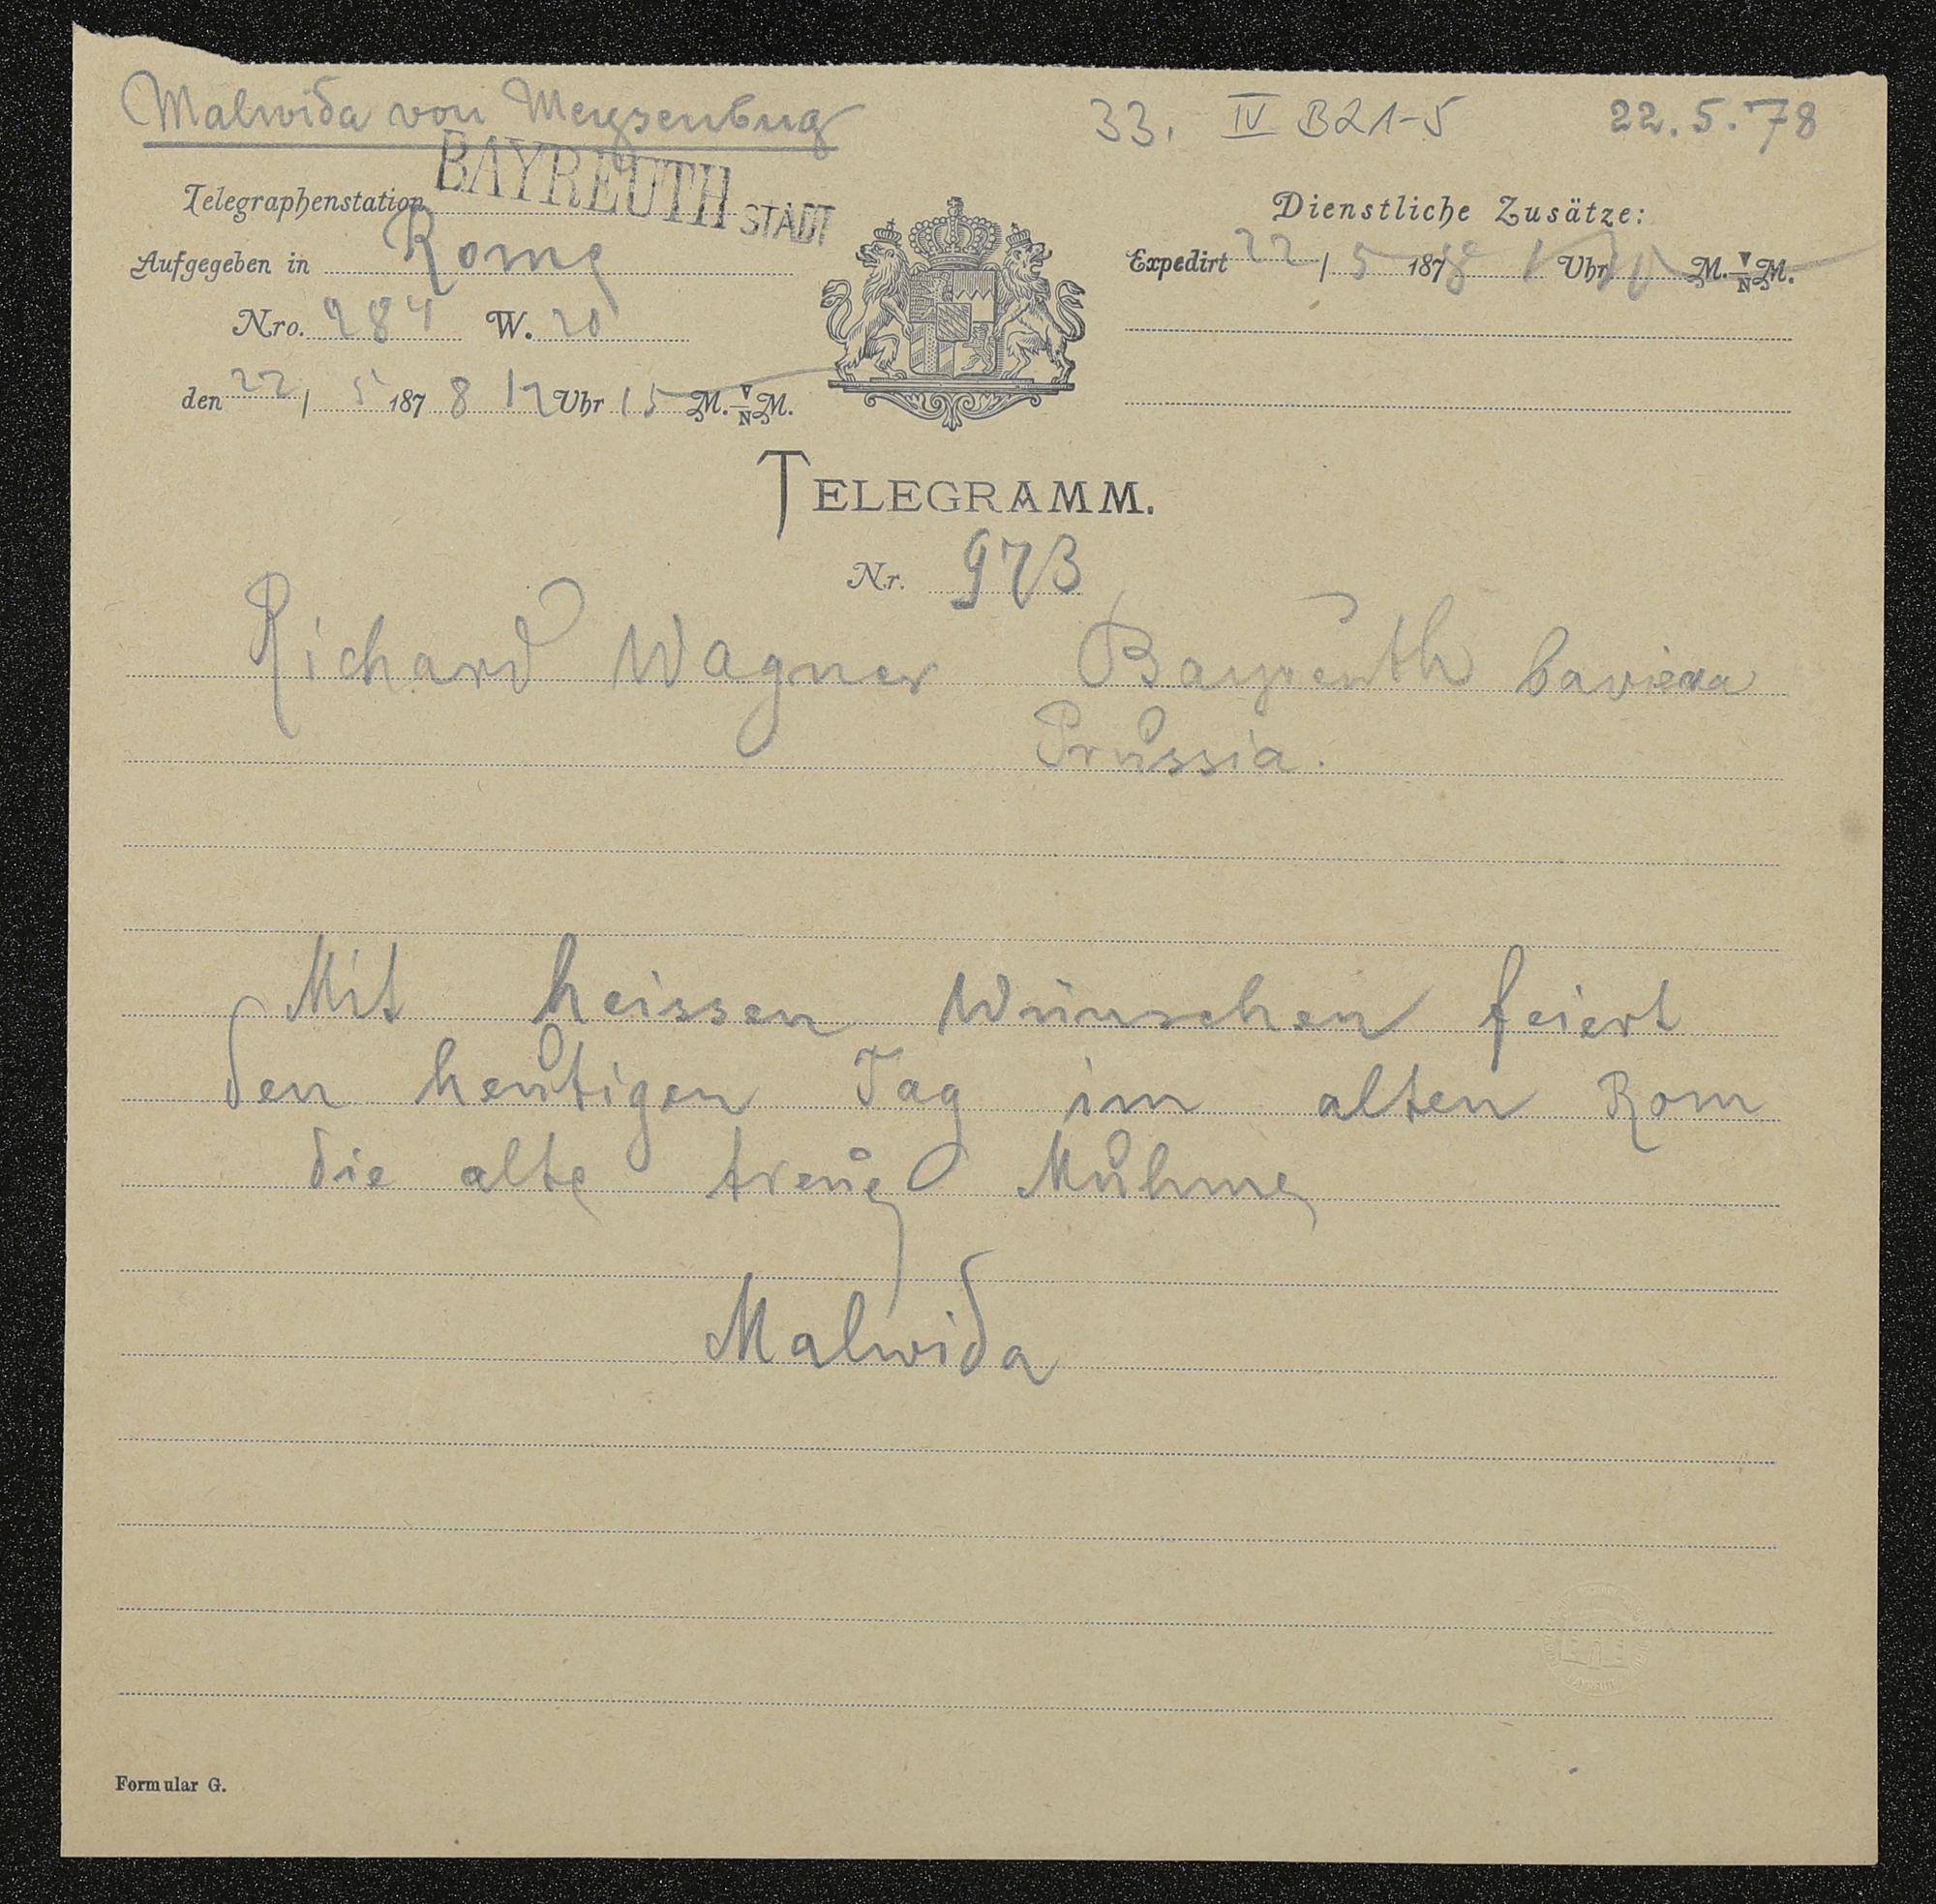 Malwida von Meysenbug 33. IV B21-5 22.5.78
Telegraphenstation BAYREUTH STADT
Dienstliche Zusätze:
Aufgegeben in Rome
Expedirt 22 / 5 1878 1 Uhr M. V/N M.
Nro. 284 W. 20
den 22 / 5 1878 12 Uhr 15 M. V/N M.
TELEGRAMM.
Nr. 973
Richard Wagner Bayreuth baviera
Prussia.
Mit heissen Wünschen feiert
den heutigen Tag im alten Rom
die alte treue Muhme
Malwida
Formular G.